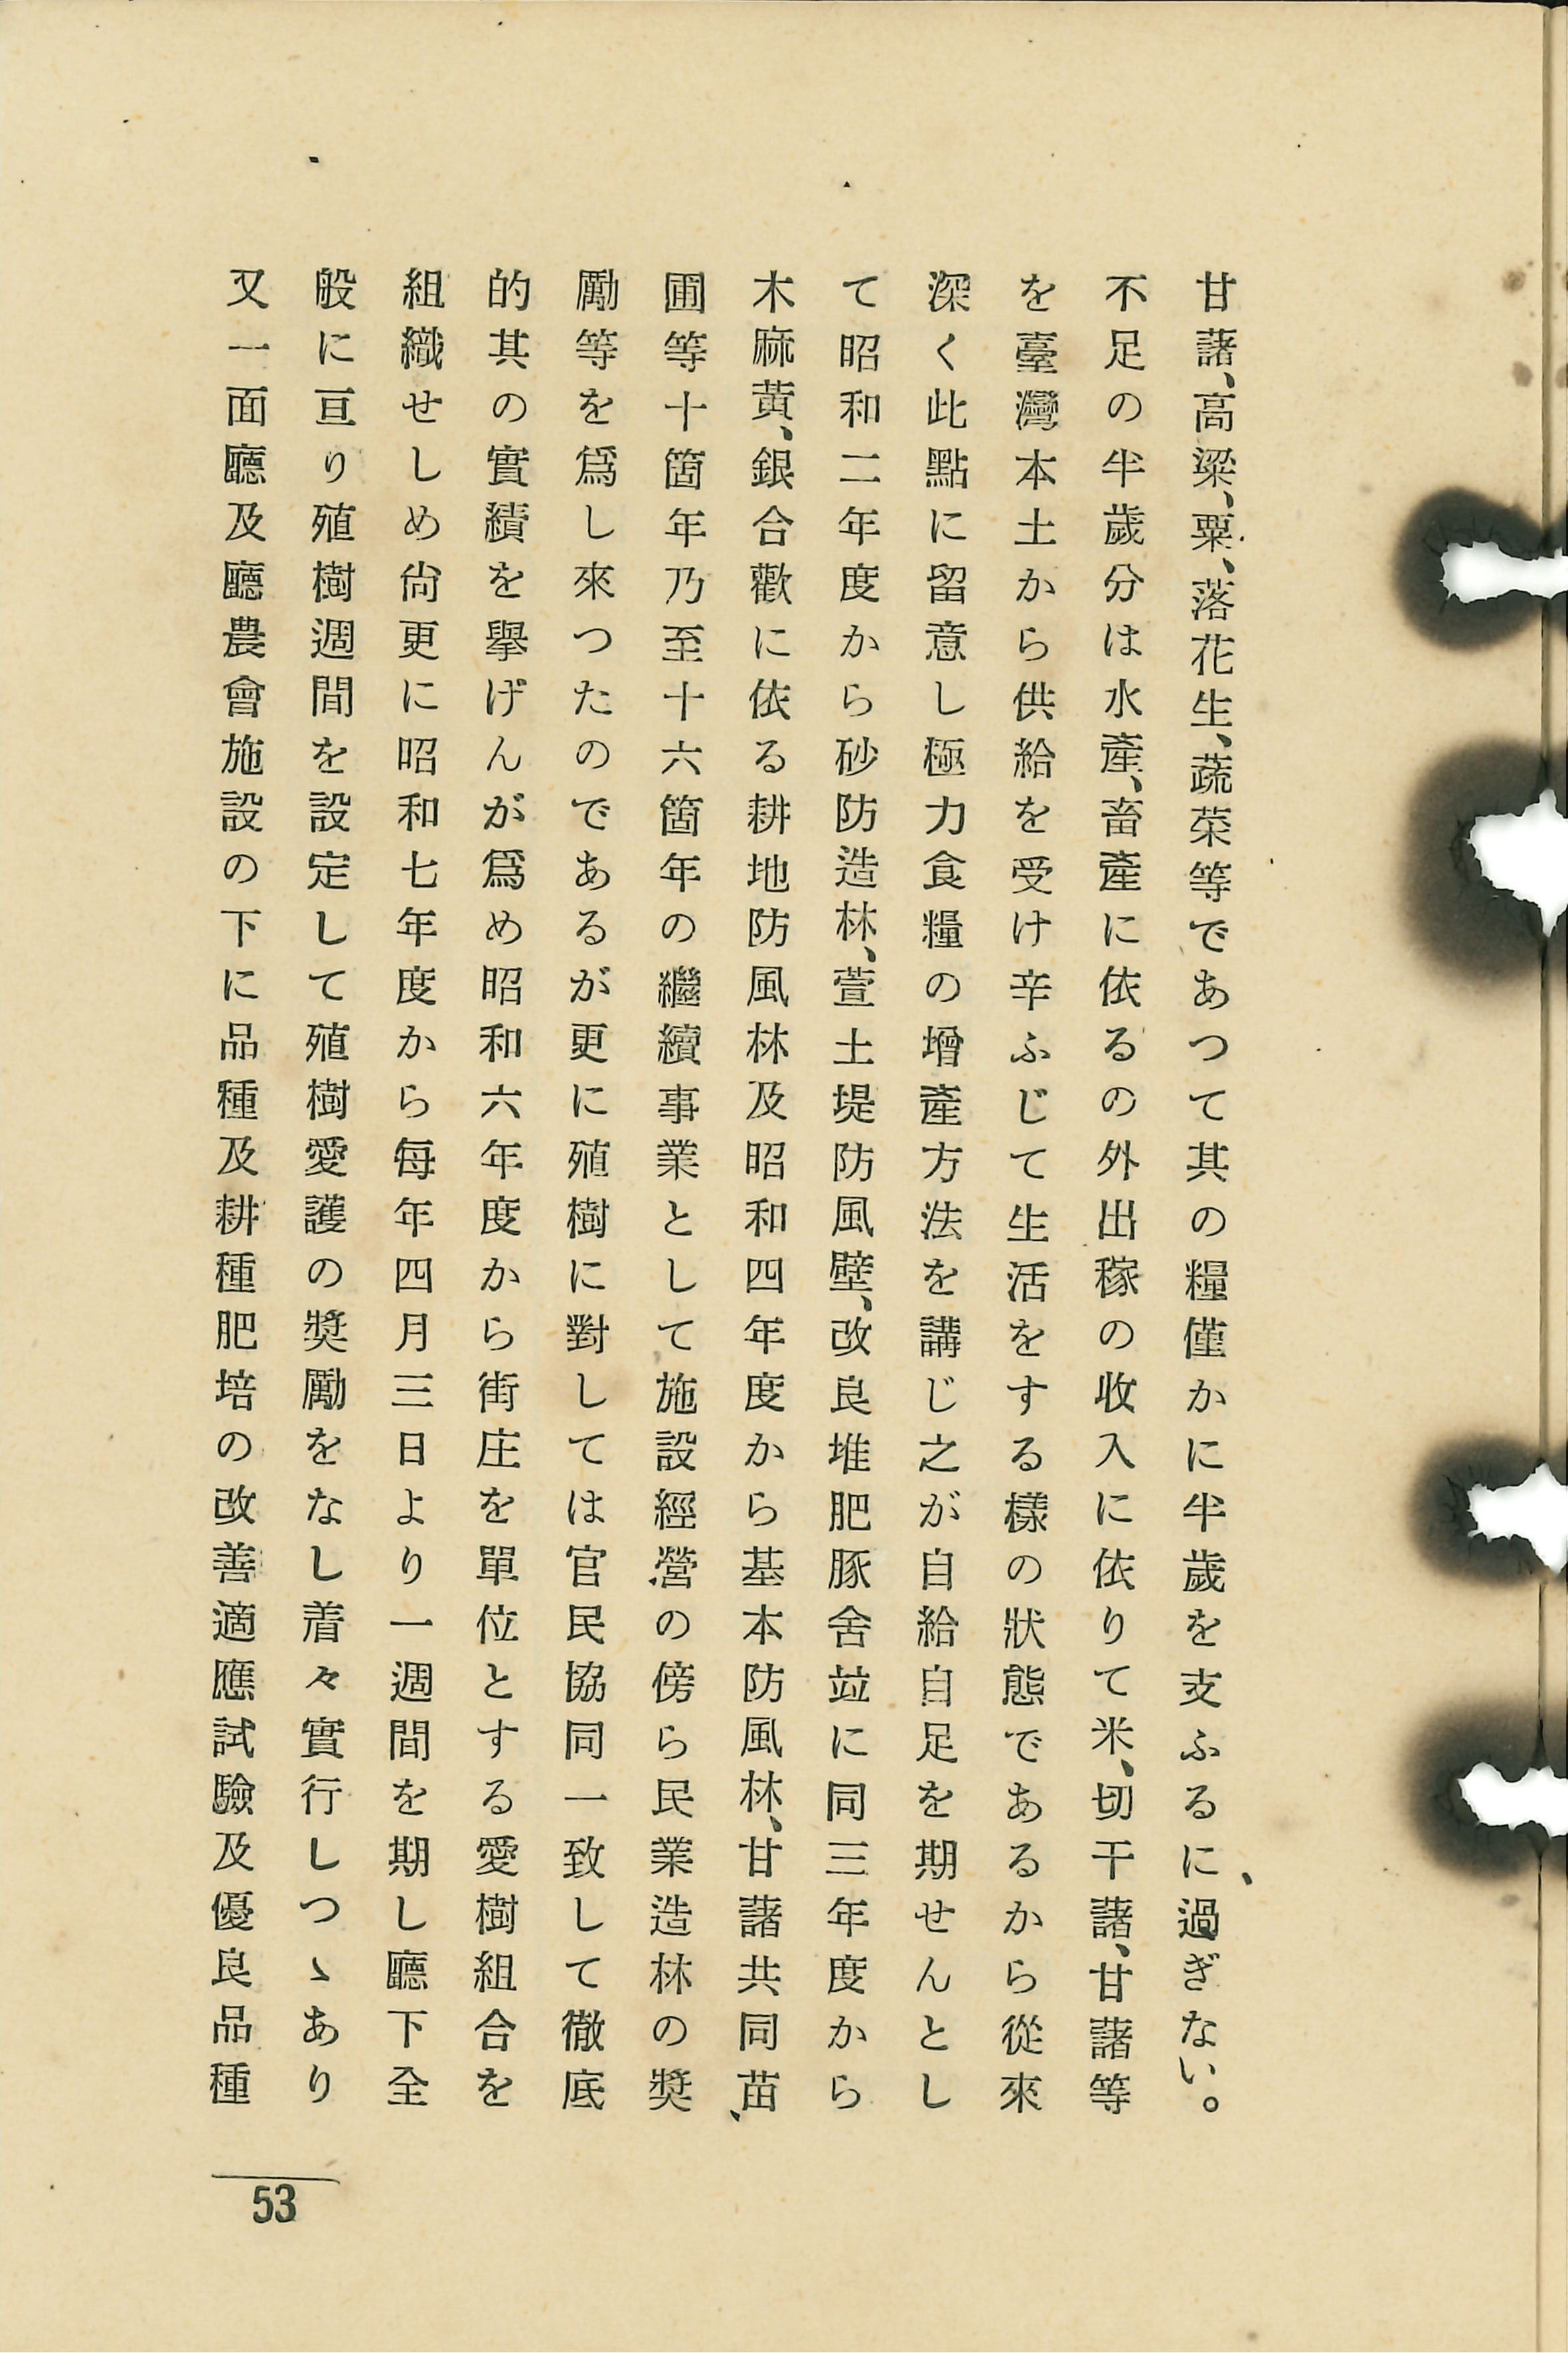 甘藷、高粱、粟、落花生、蔬菜等であつて其の糧僅かに半歲を支ふるに過ぎない。
不足の半歲分は水產、畜產に依るの外出稼の收入に依りて米、切干藷、甘藷等
を臺灣本土から供給を受け辛ふじて生活をする樣の狀態であるから從來
深く此點に留意し極力食糧の增產方法を講じ之が自給自足を期せんとし
て昭和二年度から砂防造林、萱土堤防風壁、改良堆肥豚舍竝に同三年度から
木麻黃、銀合歡に依る耕地防風林及昭和四年度から基本防風林、甘藷共同苗
圃等十箇年乃至十六箇年の繼續事業として施設經營の傍ら民業造林の奬
勵等を爲し來つたのであるが更に殖樹に對しては官民協同一致して徹底
的其の實績を擧げんが爲め昭和六年度から街庄を單位とする愛樹組合を
組織せしめ尙更に昭和七年度から每年四月三日より一週間を期し廳下全
般に亘り殖樹週間を設定して殖樹愛護の奬勵をなし着々實行しつゝあり
又一面廳及廳農會施設の下に品種及耕種肥培の改善適應試驗及優良品種
53